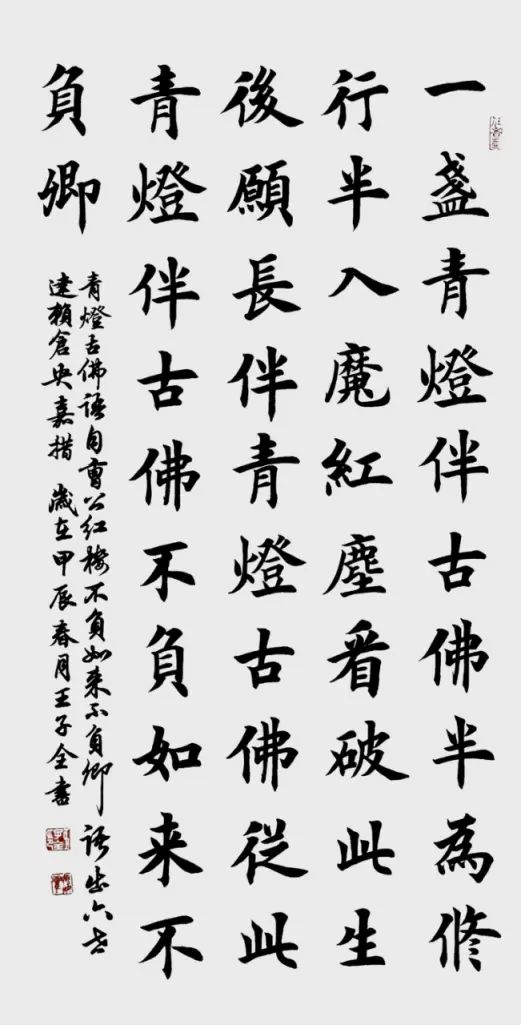 一盞青燈伴古佛半為修
行半入魔紅塵看破此生
後願長伴青燈古佛從此
青燈伴古佛不負如来不
負卿
青燈古佛語自曹公紅樓不負如来不負卿語出六世
達賴倉央嘉措 歲在甲辰春月王子全書